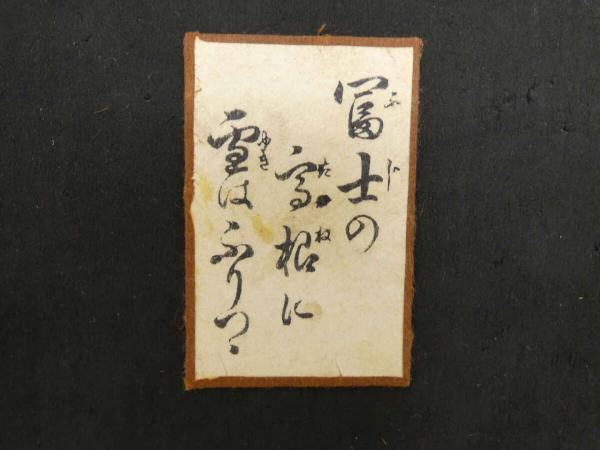 冨士の
高根に
雪はふりつゝ